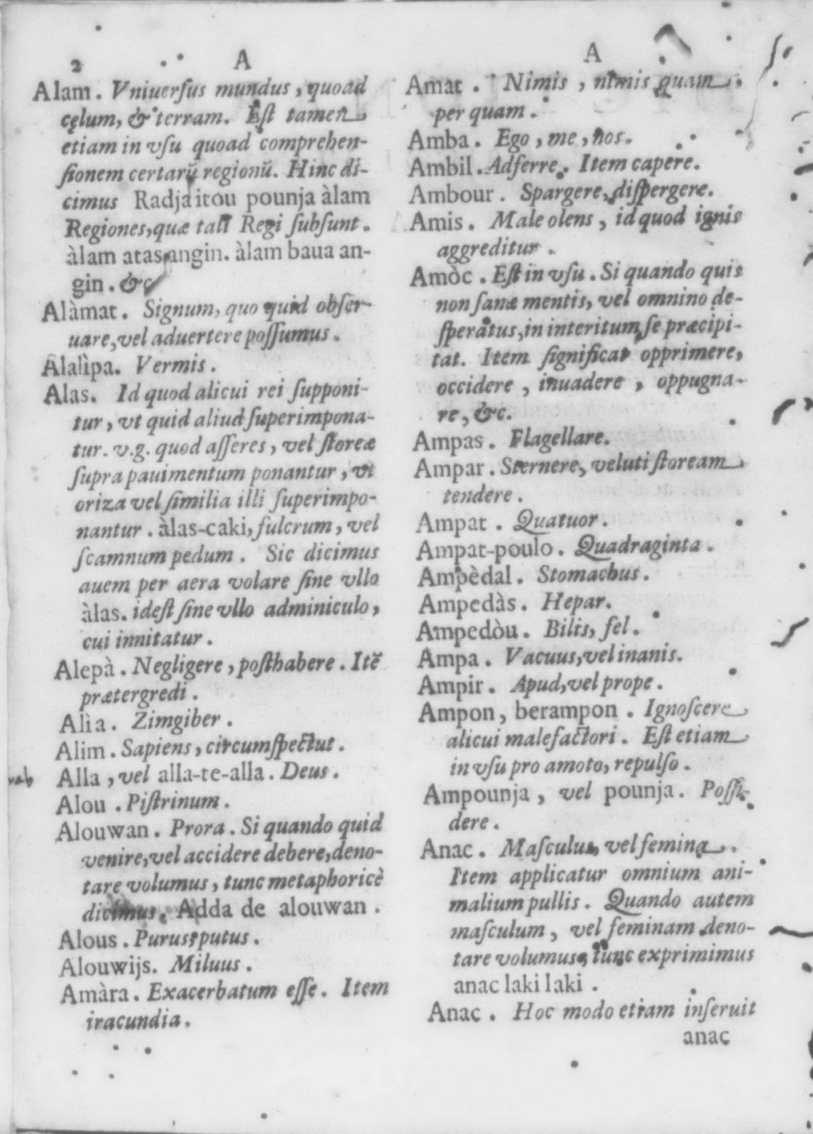 2 A
Alam. Vniuerſus mundus, quoad
cęlum, & terram. Eſt tamen
etiam in vſu quoad comprehen-
ſionem certarũ regionũ. Hinc di-
cimus Radja itou pounja àlam
Regiones, quæ tali Regi ſubſunt.
àlam atas angin. àlam baua an-
gin. &c
Alàmat. Signum, quo quid obſer-
uare, vel aduertere poſſumus.
Alalìpa. Vermis.
Alas. Id quod alicui rei ſupponi-
tur, vt quid aliud ſuperimpona-
tur. v.g. quod aſſeres, vel ſtoreæ
ſupra pauimentum ponantur, vt
oriza vel ſimilia illi ſuperimpo-
nantur. àlas-caki, fulcrum, vel
ſcamnum pedum. Sic dicimus
auem per aera volare ſine vllo
àlas. ideſt ſine vllo adminiculo,
cui innitatur.
Alepà. Negligere, poſthabere. Itẽ
prætergredi.
Alìa. Zimgiber.
Alim. Sapiens, circumſpectut.
Alla, vel alla-te-alla. Deus.
Alou. Piſtrinum.
Alouwan. Prora. Si quando quid
venire, vel accidere debere, deno-
tare volumus, tunc metaphoricè
dicimus, Adda de alouwan.
Alous. Purus putus.
Alouwijs. Miluus.
Amàra. Exacerbatum eſſe. Item
iracundia.
A
Amat. Nimis, nimis quam,
per quam.
Amba. Ego, me, nos.
Ambil. Adferre. Item capere.
Ambour. Spargere, diſpergere.
Amis. Male olens, id quod ignis
aggreditur.
Amòc. Eſt in vſu. Si quando quis
non ſanæ mentis, vel omnino de-
ſperatus, in interitum ſe præcipi-
tat. Item ſignificat opprimere,
occidere, inuadere, oppugna-
re, &c.
Ampas. Flagellare.
Ampar. Sternere, veluti ſtoream
tendere.
Ampat. Quatuor.
Ampat-poulo. Quadraginta.
Ampèdal. Stomachus.
Ampedàs. Hepar.
Ampedòu. Bilis, fel.
Ampa. Vacuus, vel inanis.
Ampir. Apud, vel prope.
Ampon, berampon. Ignoſcere
alicui malefactori. Eſt etiam
in vſu pro amoto, repulſo.
Ampounja, vel pounja. Poſſi-
dere.
Anac. Maſculus, vel femina.
Item applicatur omnium ani-
malium pullis. Quando autem
maſculum, vel feminam deno-
tare volumus, tunc exprimimus
anac laki laki.
Anac. Hoc modo etiam inſeruit
anac